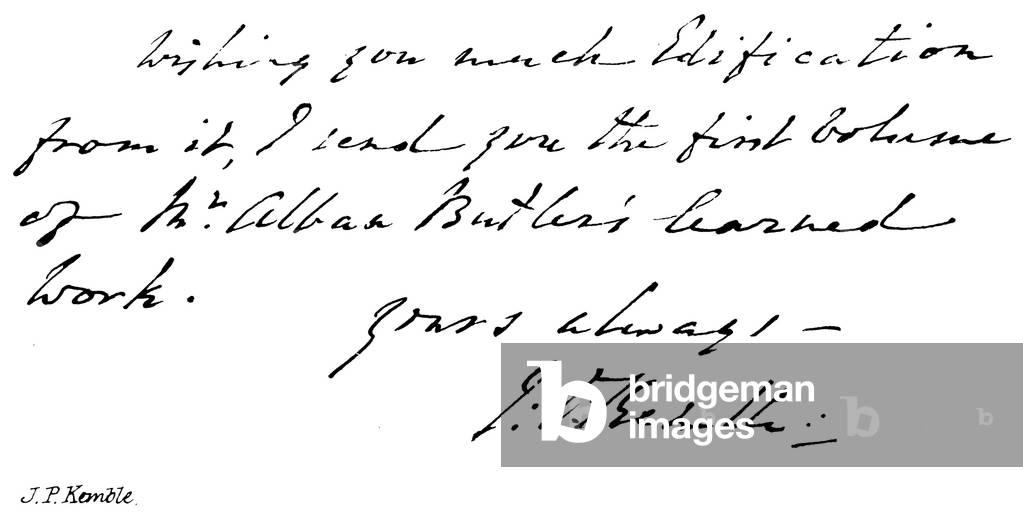 Wishing you much Edification
from it, I send you the first Volume
of Mr. Alban Butler's learned
Work.
Yours always —
J: P Kemble :
b bridgeman images
b
b
J. P. Kemble.